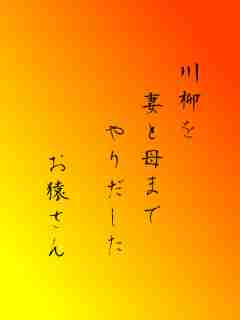 川柳を
妻と母まで
やりだした
お猿さん